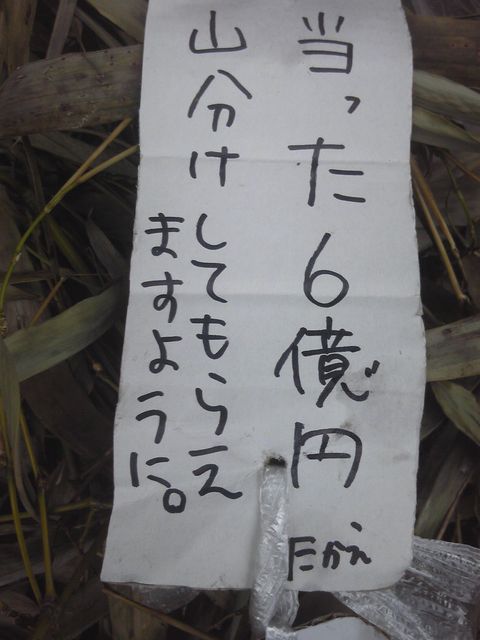 当った6億円
山分けしてもらえ
ますように。
たかえ